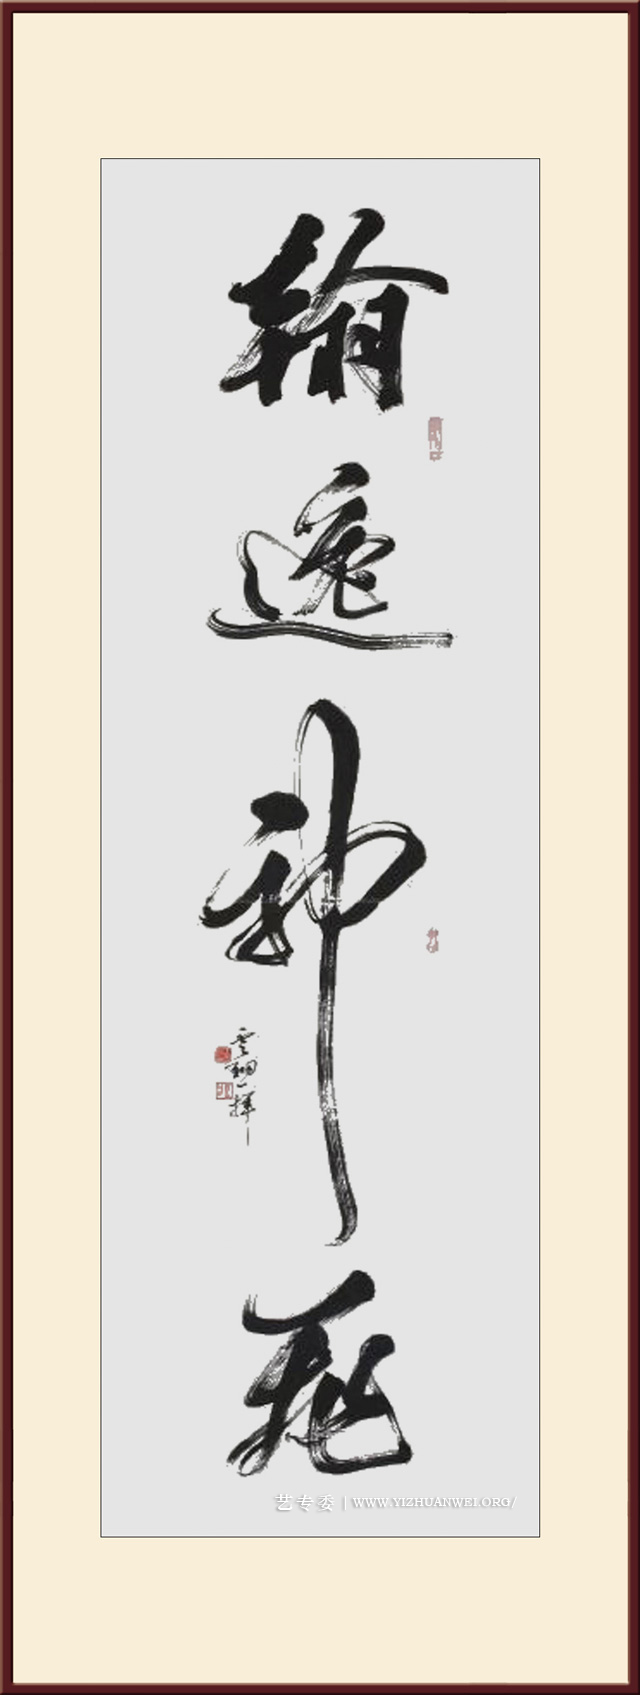 翰逸神飛
艺专委 | WWW.YIZHUANWEI.ORG/